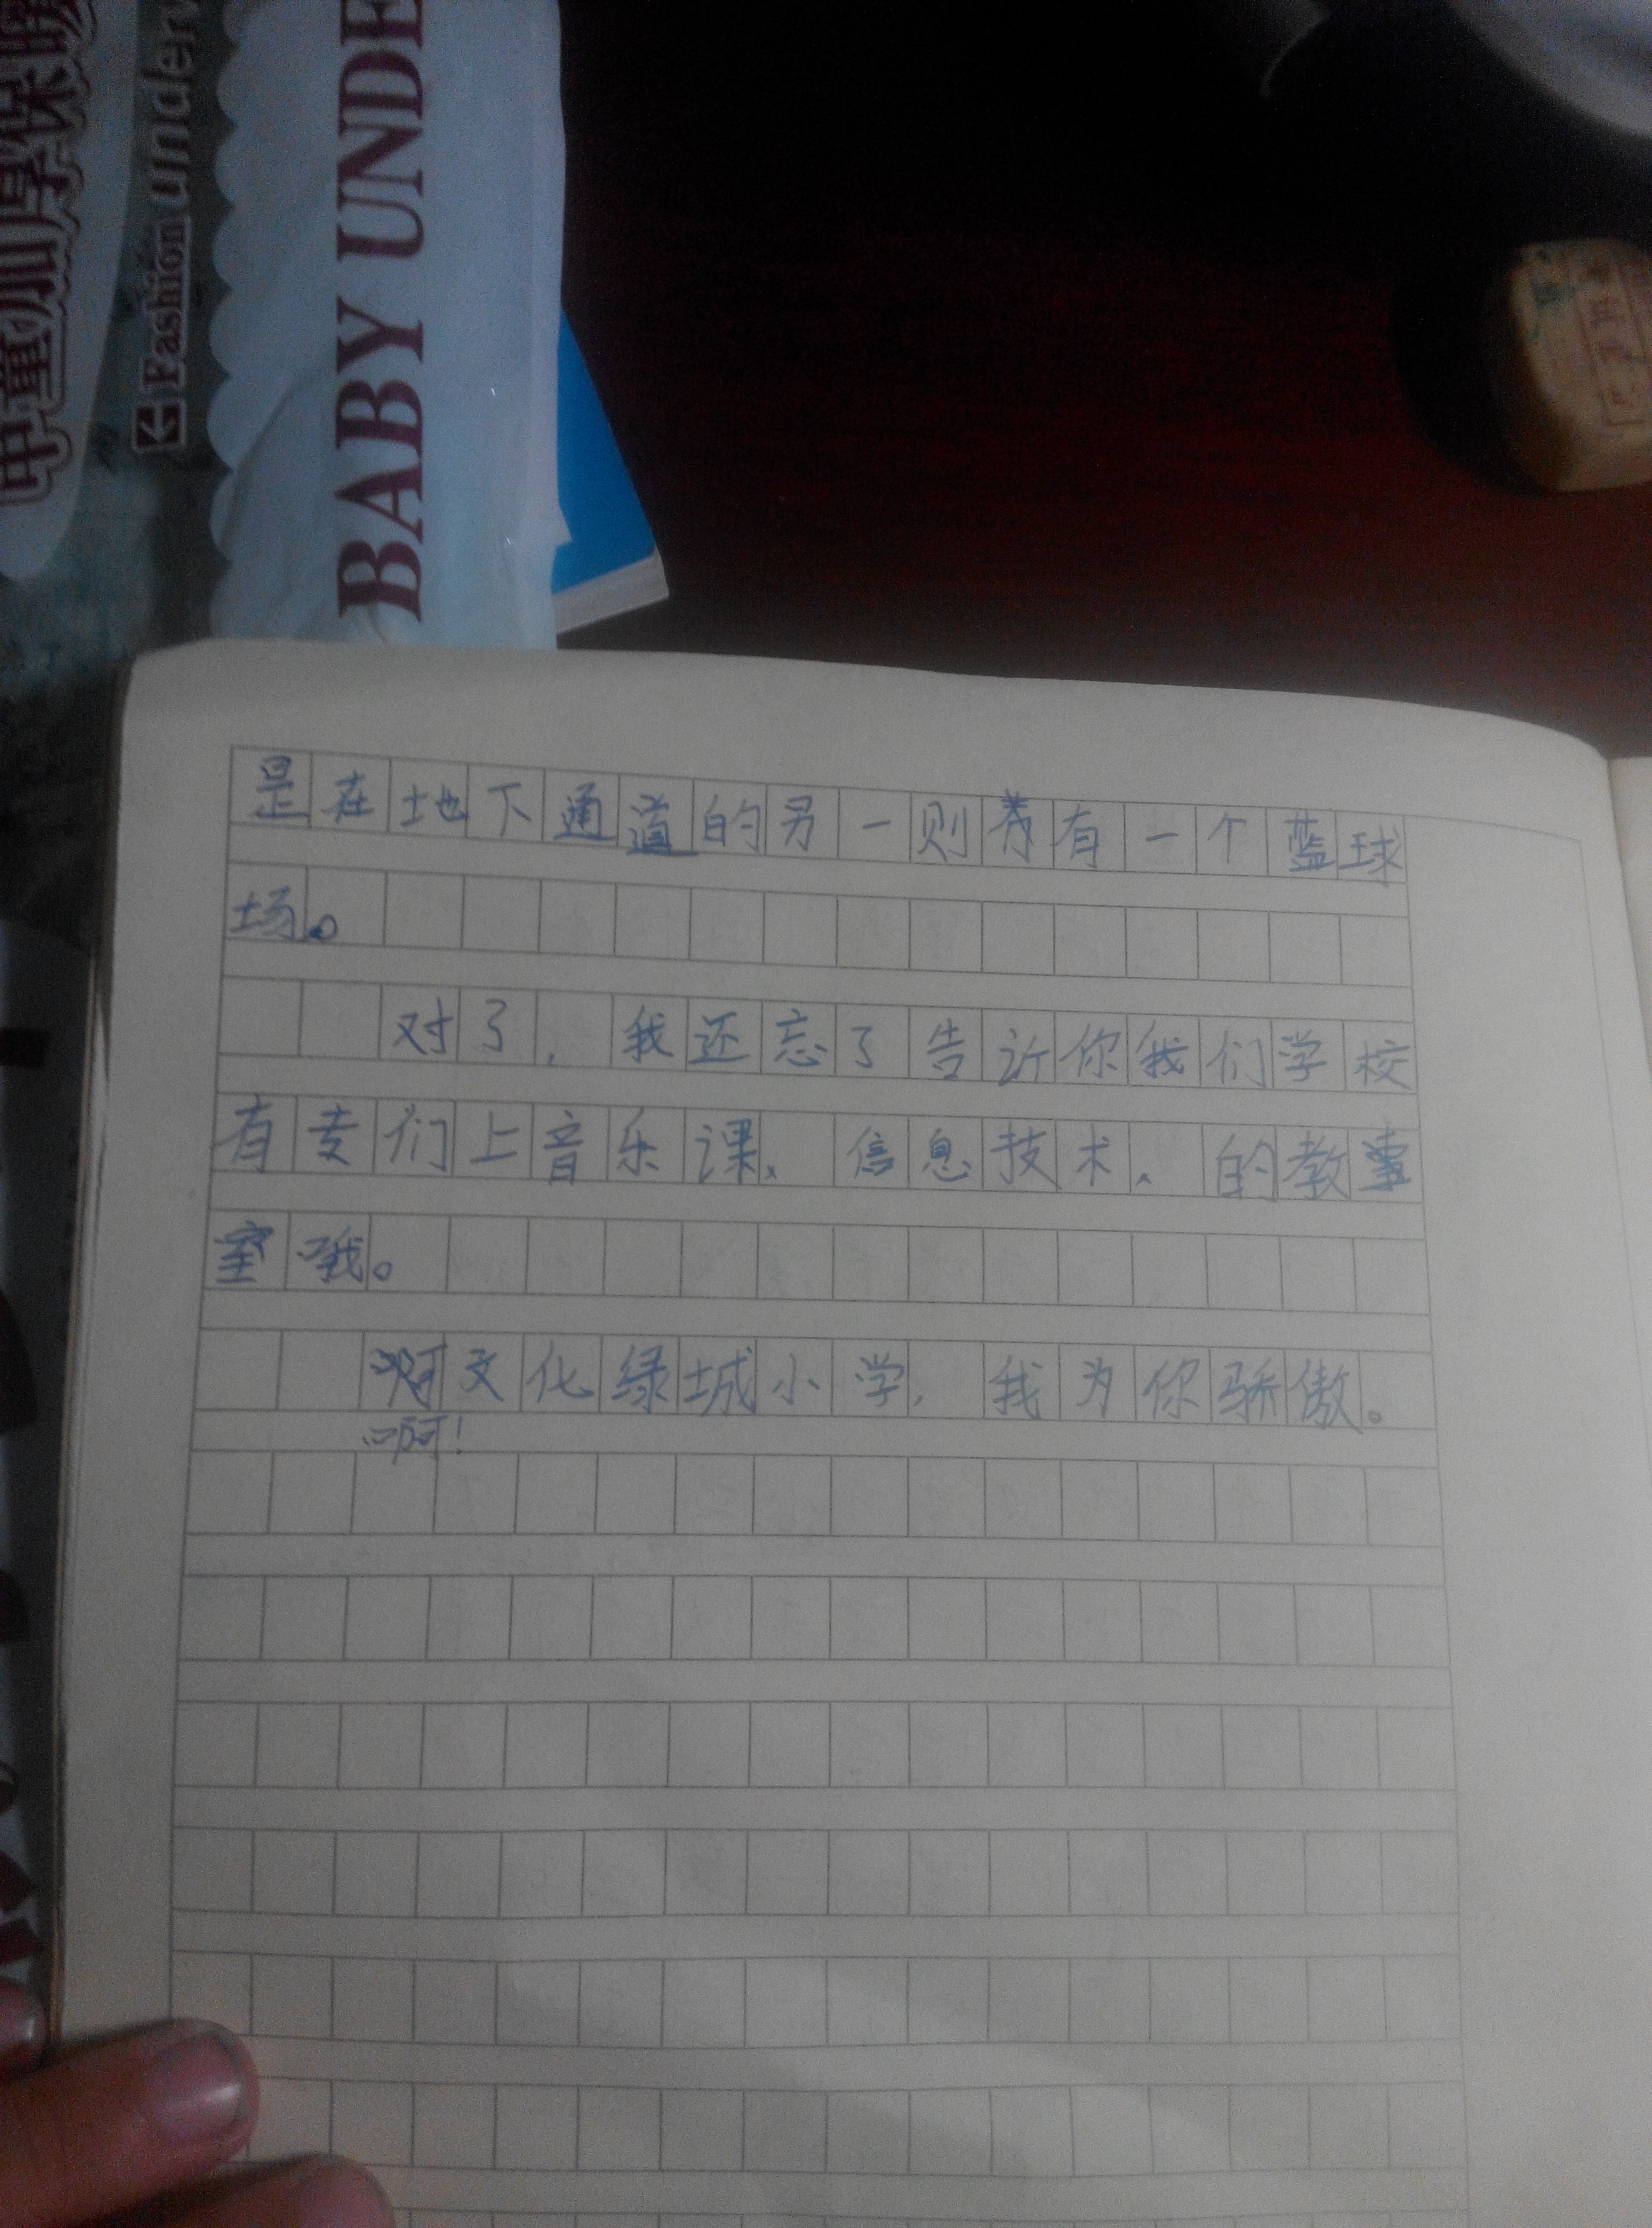 中童加厚保暖
Fashion underw
BABY UNDE
是在地下通道的另一则有一个蓝球
场。
对了，我还忘了告诉你我们学校
有专们上音乐课、信息技术、的教
室哦。
啊文化绿城小学，我为你骄傲。
啊！